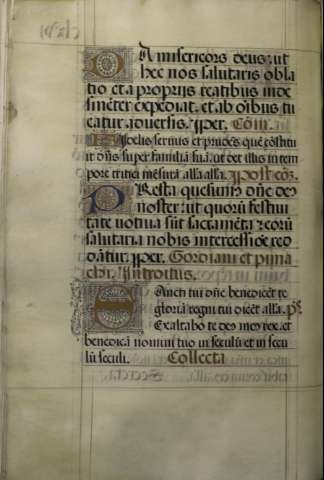 Da misericors deus: ut
hec nos salutaris obla
tio et a proprijs reatibus inde
sinēter expediat. et ab oībus tu
eatur aduersis. Per. Cōm.
Fidelis seruus et prudēs quē cōstitu
it dn̄s super familiā suā. ut det illis in tem
pore tritici mēsurā alla. alla. Post cōm.
Presta quesum⁹ dn̄e de⁹
noster: ut quorū festiui
tate uotiua sūt sacramēta: eorū
salutaria nobis intercessiōe red
dātur. Per. Gordiani et epima
chi. Introitus.
Sancti tui dn̄e benedicēt te
gloriā regni tui dicēt alla. ps.
Exaltabo te deus meus rex. et
benedicā nomini tuo in seculū et in secu
lū seculi. Collecta